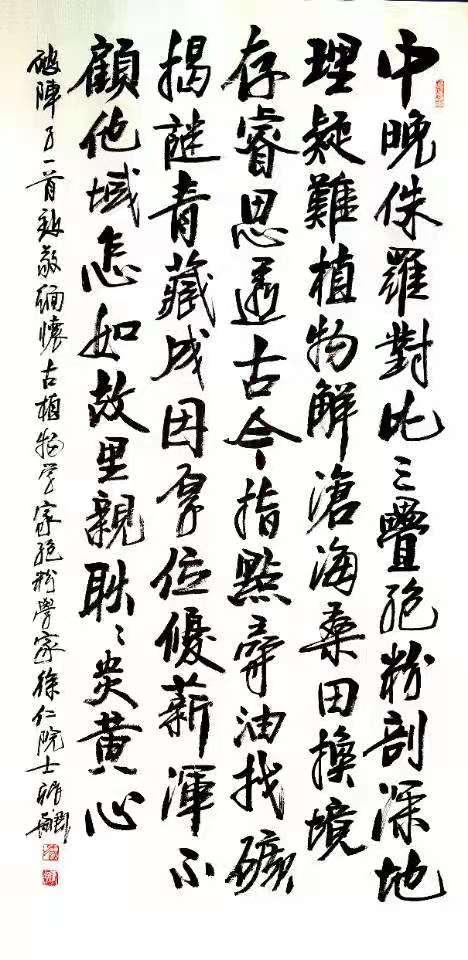 中晚侏羅對比三疊孢粉剖深地
理疑難植物解滄海桑田換境
存睿思透古今指點尋油找礦
揭謎青藏成因位優薪渾不
顧他域怎如故里親耿〻炎黃心
破陣子一首致敬緬懷古植物学家孢粉學家徐仁院士